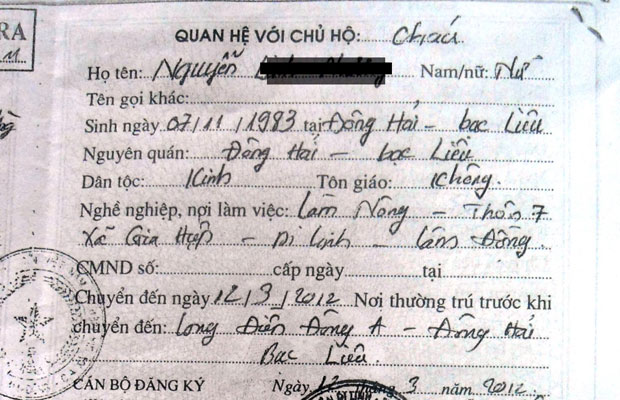 RA
QUAN HỆ VỚI CHỦ HỘ: Cháu
Họ tên: Nguyễn Nam/nữ: Nữ
Tên gọi khác:
Sinh ngày 07/11/1983 tại Đông Hải - bạc Liêu
Nguyên quán: Đông Hải - bạc Liêu
Dân tộc: Kinh Tôn giáo: Không.
Nghề nghiệp, nơi làm việc: Làm Nông - Thôn 7
Xã Gia Hiệp - Di Linh - Lâm Đồng.
CMND số: cấp ngày tại
Chuyển đến ngày 12/3/2012 Nơi thường trú trước khi
chuyển đến: Long Điền Đông A - Đông Hải
Bạc Liêu
CÁN BỘ ĐĂNG KÝ Ngày 12 tháng 3 năm 2012